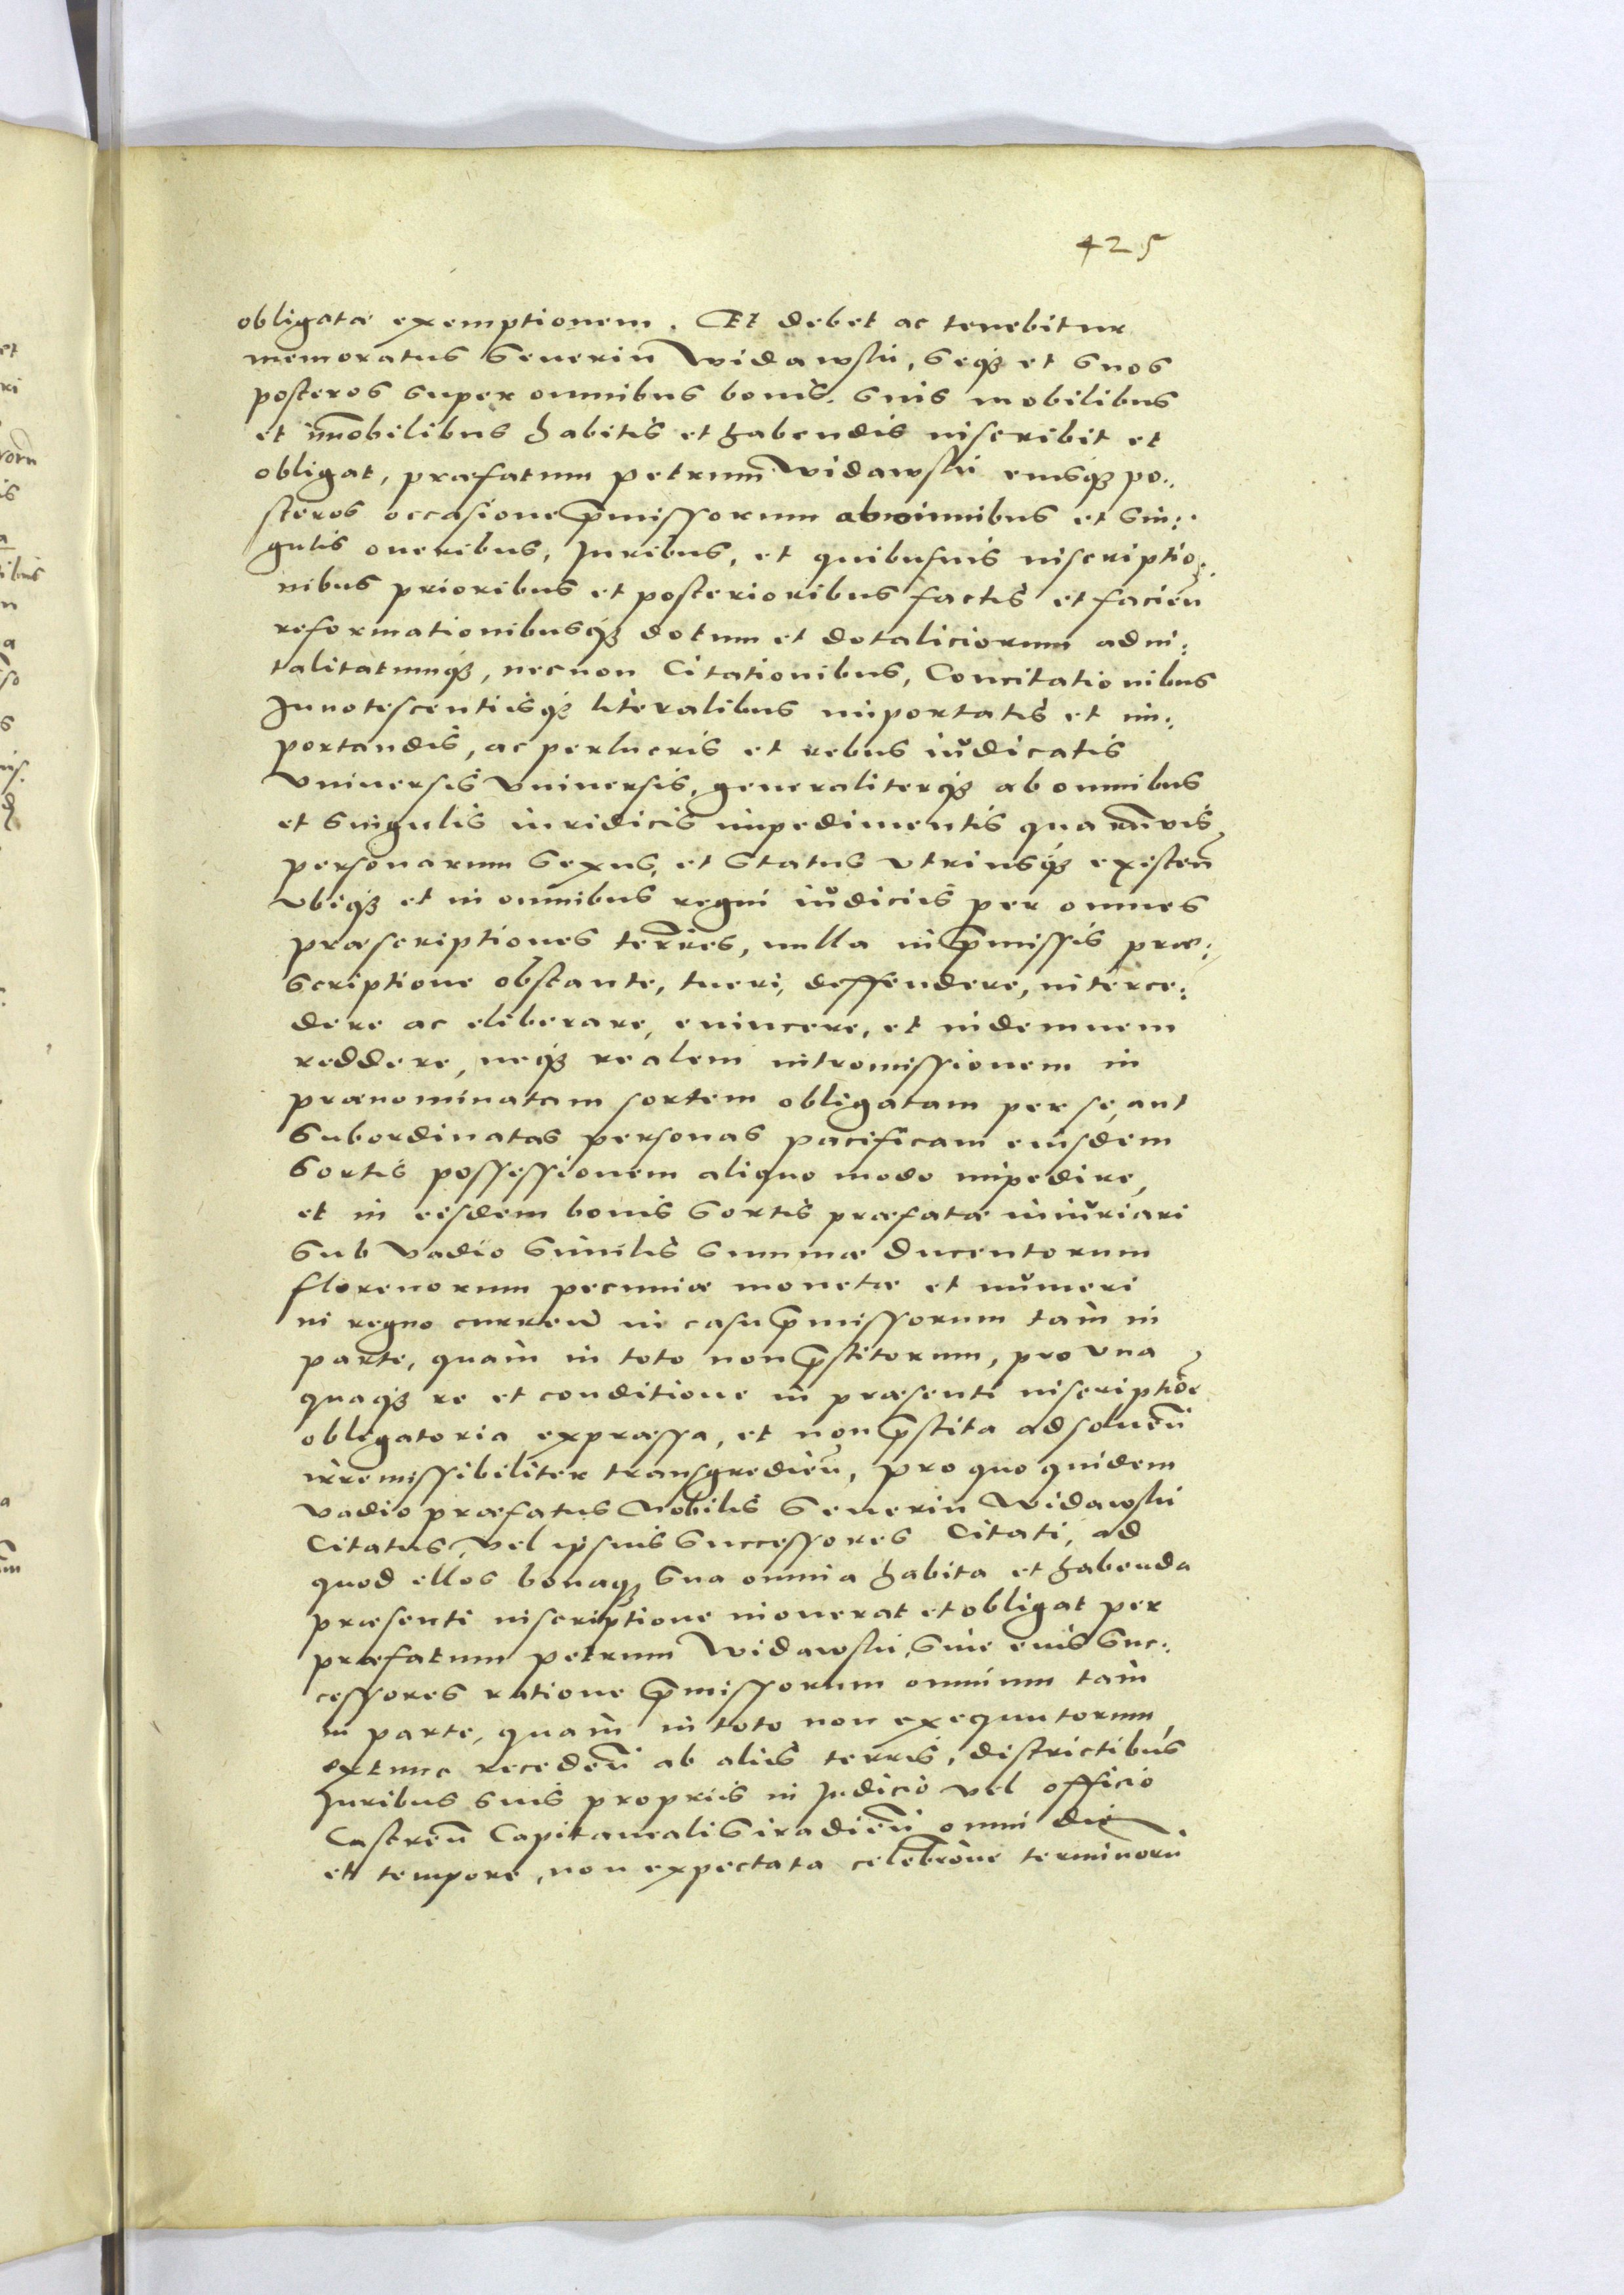 425
obligatæ exemptionem. Et debet ac tenebitur
memoratus Seuerin̄ Widawski, seq₃ et suos
posteros super omnibus bonis suis mobilibus
et im̄obilibus habitis et habendis inscribit et
obligat, præfatum Petrum Widawski eiusq₃ po:
steros occasione p̄missorum ab omnibus et sin:
gulis oneribus, Juribus, et quibusuis inscriptio:
nibus prioribus et posterioribus factis et facien̄
reformationibusq₃ dotum et dotaliciorum adui:
talitatumq₃, necnon Citationibus, Concitationibus
Innotescentiisq₃ literalibus importatis et im:
portandis, ac perlucris et rebus iudicatis
vniuersis vniuersis, generaliterq₃ ab omnibus
et singulis iuridicis impedimentis quarum̄vis
personarum sexus, et status vtriusq₃ existen̄
vbiq₃ et in omnibus regni iudiciis per omnes
præscriptiones terrēs, nulla in p̄missis præ:
scriptione obstante, tueri, deffendere, interce:
dere ac eliberare, euincere, et indemnem
reddere, neq₃ realem intromissionem in
prænominatam sortem obligatam per se, aut
subordinatas personas pacificam eiusdem
sortis possessionem aliquo modo impedire,
et in eisdem bonis sortis præfatæ iniuriari
sub vadio similis summæ ducentorum
florenorum pecuniæ monetæ et numeri
in regno curren̄ in casu p̄missorum tam in
parte, quam in toto non p̄stitorum, pro vna
quaq₃ re et conditione in præsenti inscriptiōe
obligatoria expressa, et non p̄stita adsoluen̄
irremissibiliter transgredien̄, pro quo quidem
vadio præfatus Nobilis Seuerin Widawski
Citatus, vel ipsius successores Citati, ad
quod illos bonaq₃ sua omnia habita et habenda
præsenti inscriptione inonerat et obligat per
præfatum Petrum Widawski, siue eius suc:
cessores ratione p̄missorum omnium tam
in parte, quam in toto non exequutorum,
extunc receden̄ ab aliis terris, districtibus
Juribus suis propriis in Judicio vel officio
Castren̄ Capitaneali Siradien̄ omni die
et tempore, non expectata celebrōne terminorū